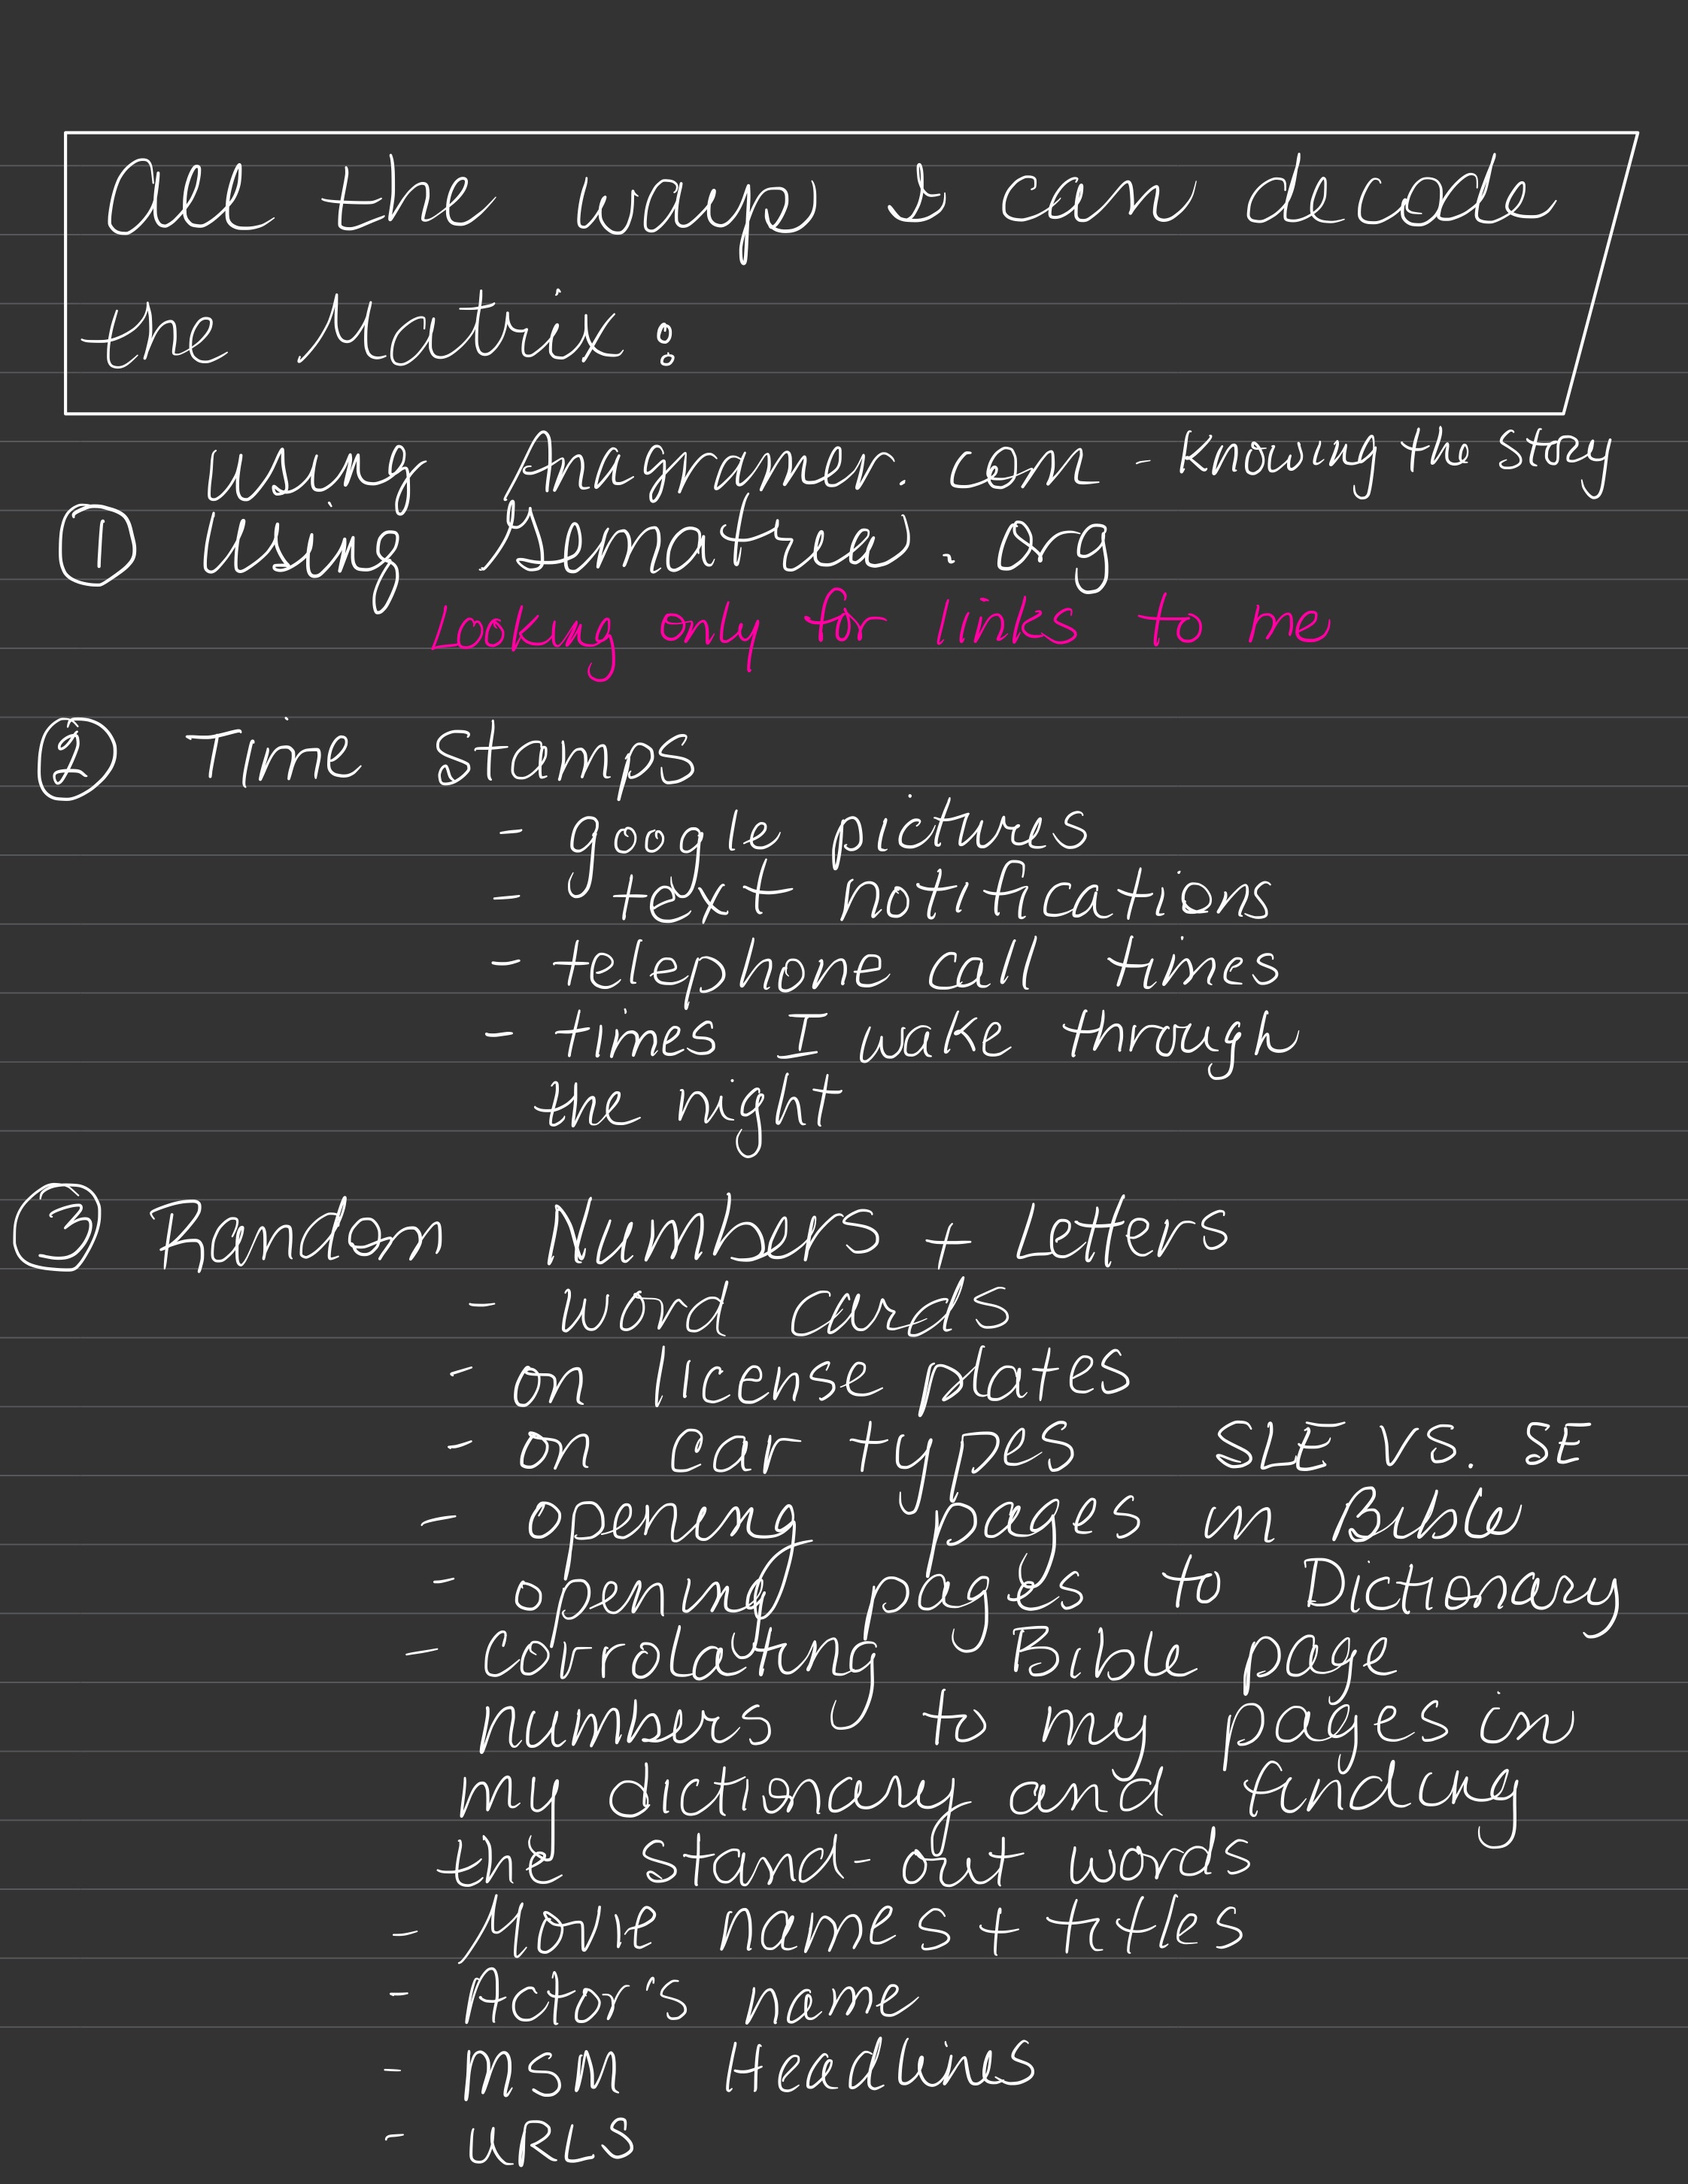 All the ways I can decode
the Matrix:
Using Anagramer.com - Knowing the story
① Using Gematrea.org
Looking only for links to me
② Time Stamps
- google pictures
- text notifications
- telephone call times
- times I wake through
the night
③ Random Numbers + Letters
- word cards
- on license plates
- on car types SLE vs. SE
- opening pages in Bible
- opening pages to Dictionary
- corrolating Bible page
numbers to my pages in
my dictionary and finding
the stand-out words
- Movie names + titles
- Actor's name
- MSM Headlines
- URLS